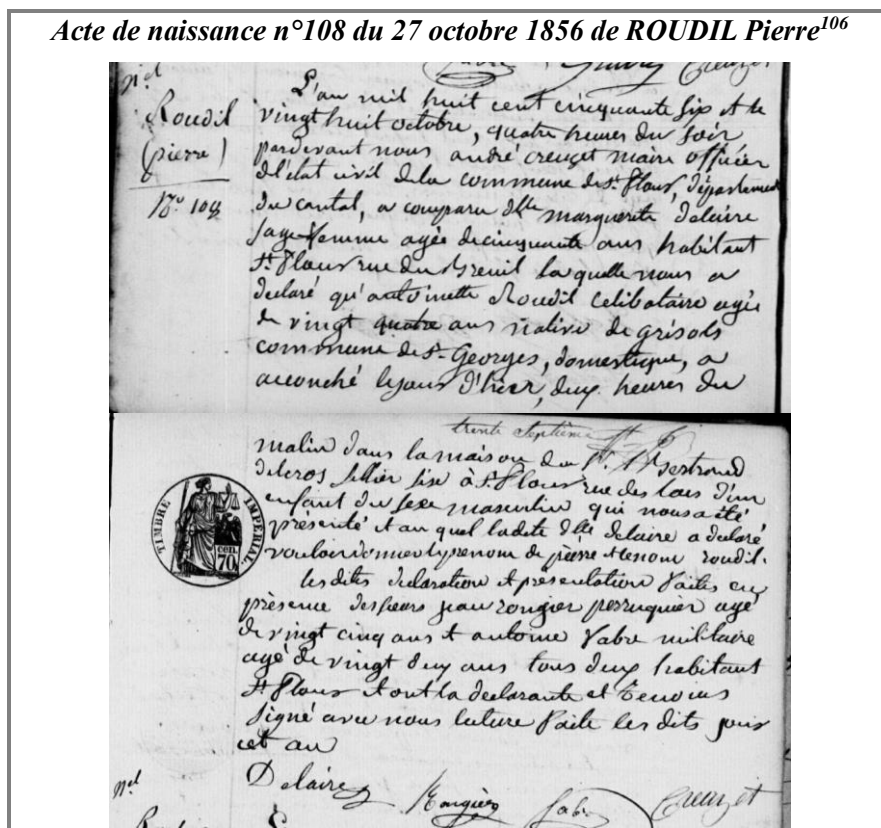 Acte de naissance n°108 du 27 octobre 1856 de ROUDIL Pierre106
Creuzet
n.el
Roudil
(pierre)
N.o 108
L'an mil huit cent cinquante six et le
vingt huit octobre, quatre heures du soir
pardevant nous andré creuzet maire officier
de l'état civil de la commune de St. Flour, département
du cantal, a comparu d.lle marguerite delaire
sage femme agée de cinquante ans habitant
St. Flour rue du breuil laquelle nous a
declaré qu'antoinette Roudil celibataire agée
de vingt quatre ans native de grisols
commune de St. Georges, domestique, a
accouché le jour d'hier, deux heures du
trente septième
matin dans la maison du Sr. Bertrand
delcros sellier sise à St. Flour rue des lacs d'un
enfant du sexe masculin qui nous a été
présenté et au quel la dite d.lle delaire a declaré
vouloir donner le prenom de pierre et le nom roudil.
les dites declaration et présentation faites en
présence des sieurs jean rongier perruquier agé
de vingt cinq ans et antoine Fabre militaire
agé de vingt deux ans tous deux habitant
St. Flour et ont la declarante et temoins
signé avec nous lecture faite les dits jour
et an
TIMBRE IMPERIAL
CEN. 70
Delaire Rougier Fabre Creuzet
n.el